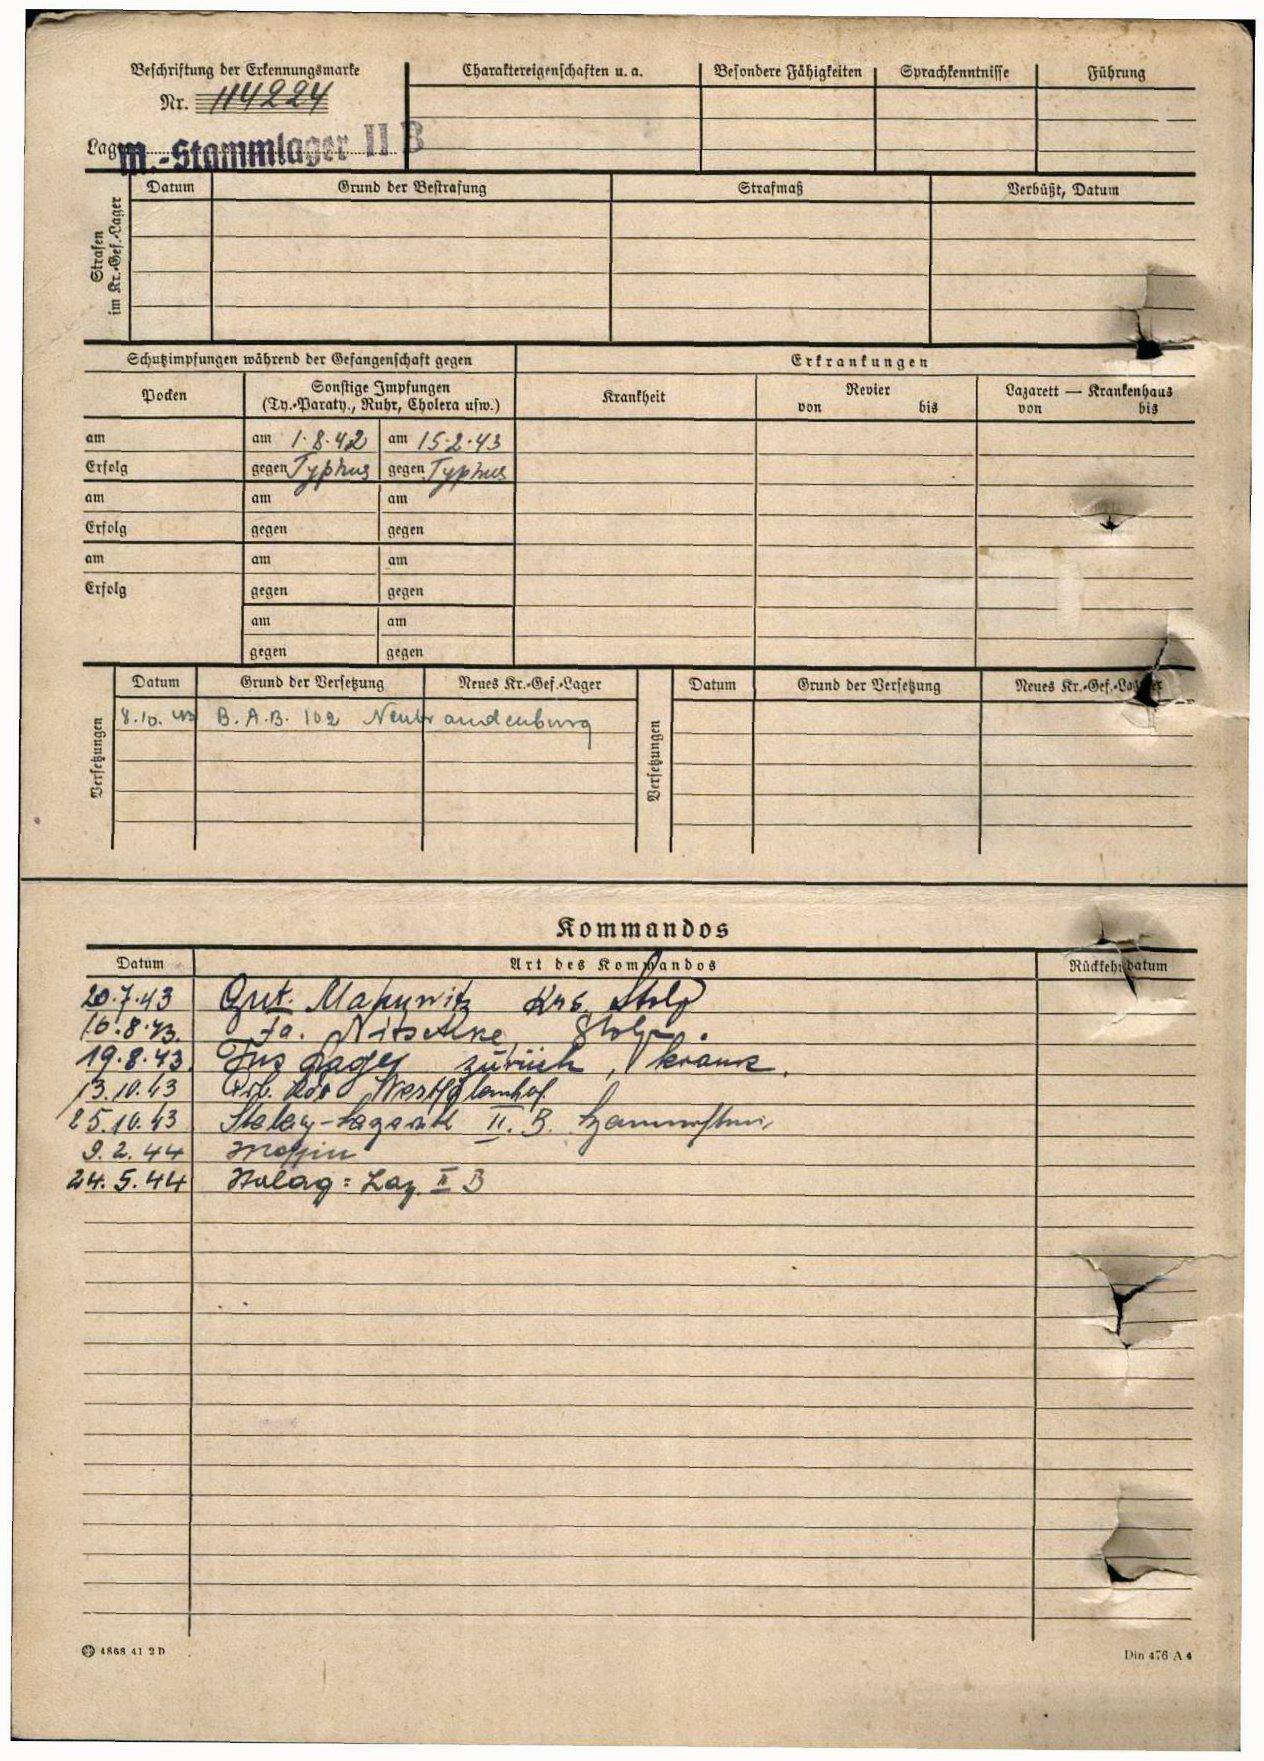 Beschriftung der Erkennungsmarke
Nr. 114224
Lager M.-Stammlager II B
Charaktereigenschaften u. a. Besondere Fähigkeiten Sprachkenntnisse Führung
Strafen im Kr.-Gef.-Lager
Datum Grund der Bestrafung Strafmaß Verbüßt, Datum
Schutzimpfungen während der Gefangenschaft gegen Erkrankungen
Pocken Sonstige Impfungen Krankheit Revier Lazarett — Krankenhaus
(Ty.-Paraty., Ruhr, Cholera usw.) von bis von bis
am am 1.8.42 am 15.2.43
Erfolg gegen Typhus gegen Typhus
am am am
Erfolg gegen gegen
am am am
Erfolg gegen gegen
am am
gegen gegen
Versetzungen
Datum Grund der Versetzung Neues Kr.-Gef.-Lager
8.10.43 B.A.B. 102 Neubrandenburg
Versetzungen
Datum Grund der Versetzung Neues Kr.-Gef.-Lager
Kommandos
Datum Art des Kommandos Rückkehrdatum
20.7.43 Gut. Krs. Stolp
16.8.43. Fa. Nitschke, Stolp.
19.8.43. Ins Lager zurück, krank.
13.10.43 Arb. Kdo
25.10.43 Stalag-Lazarett II. B. Hammerstein
9.2.44
24.5.44 Stalag: Laz. II B
4868 41 2 D
Din 476 A 4